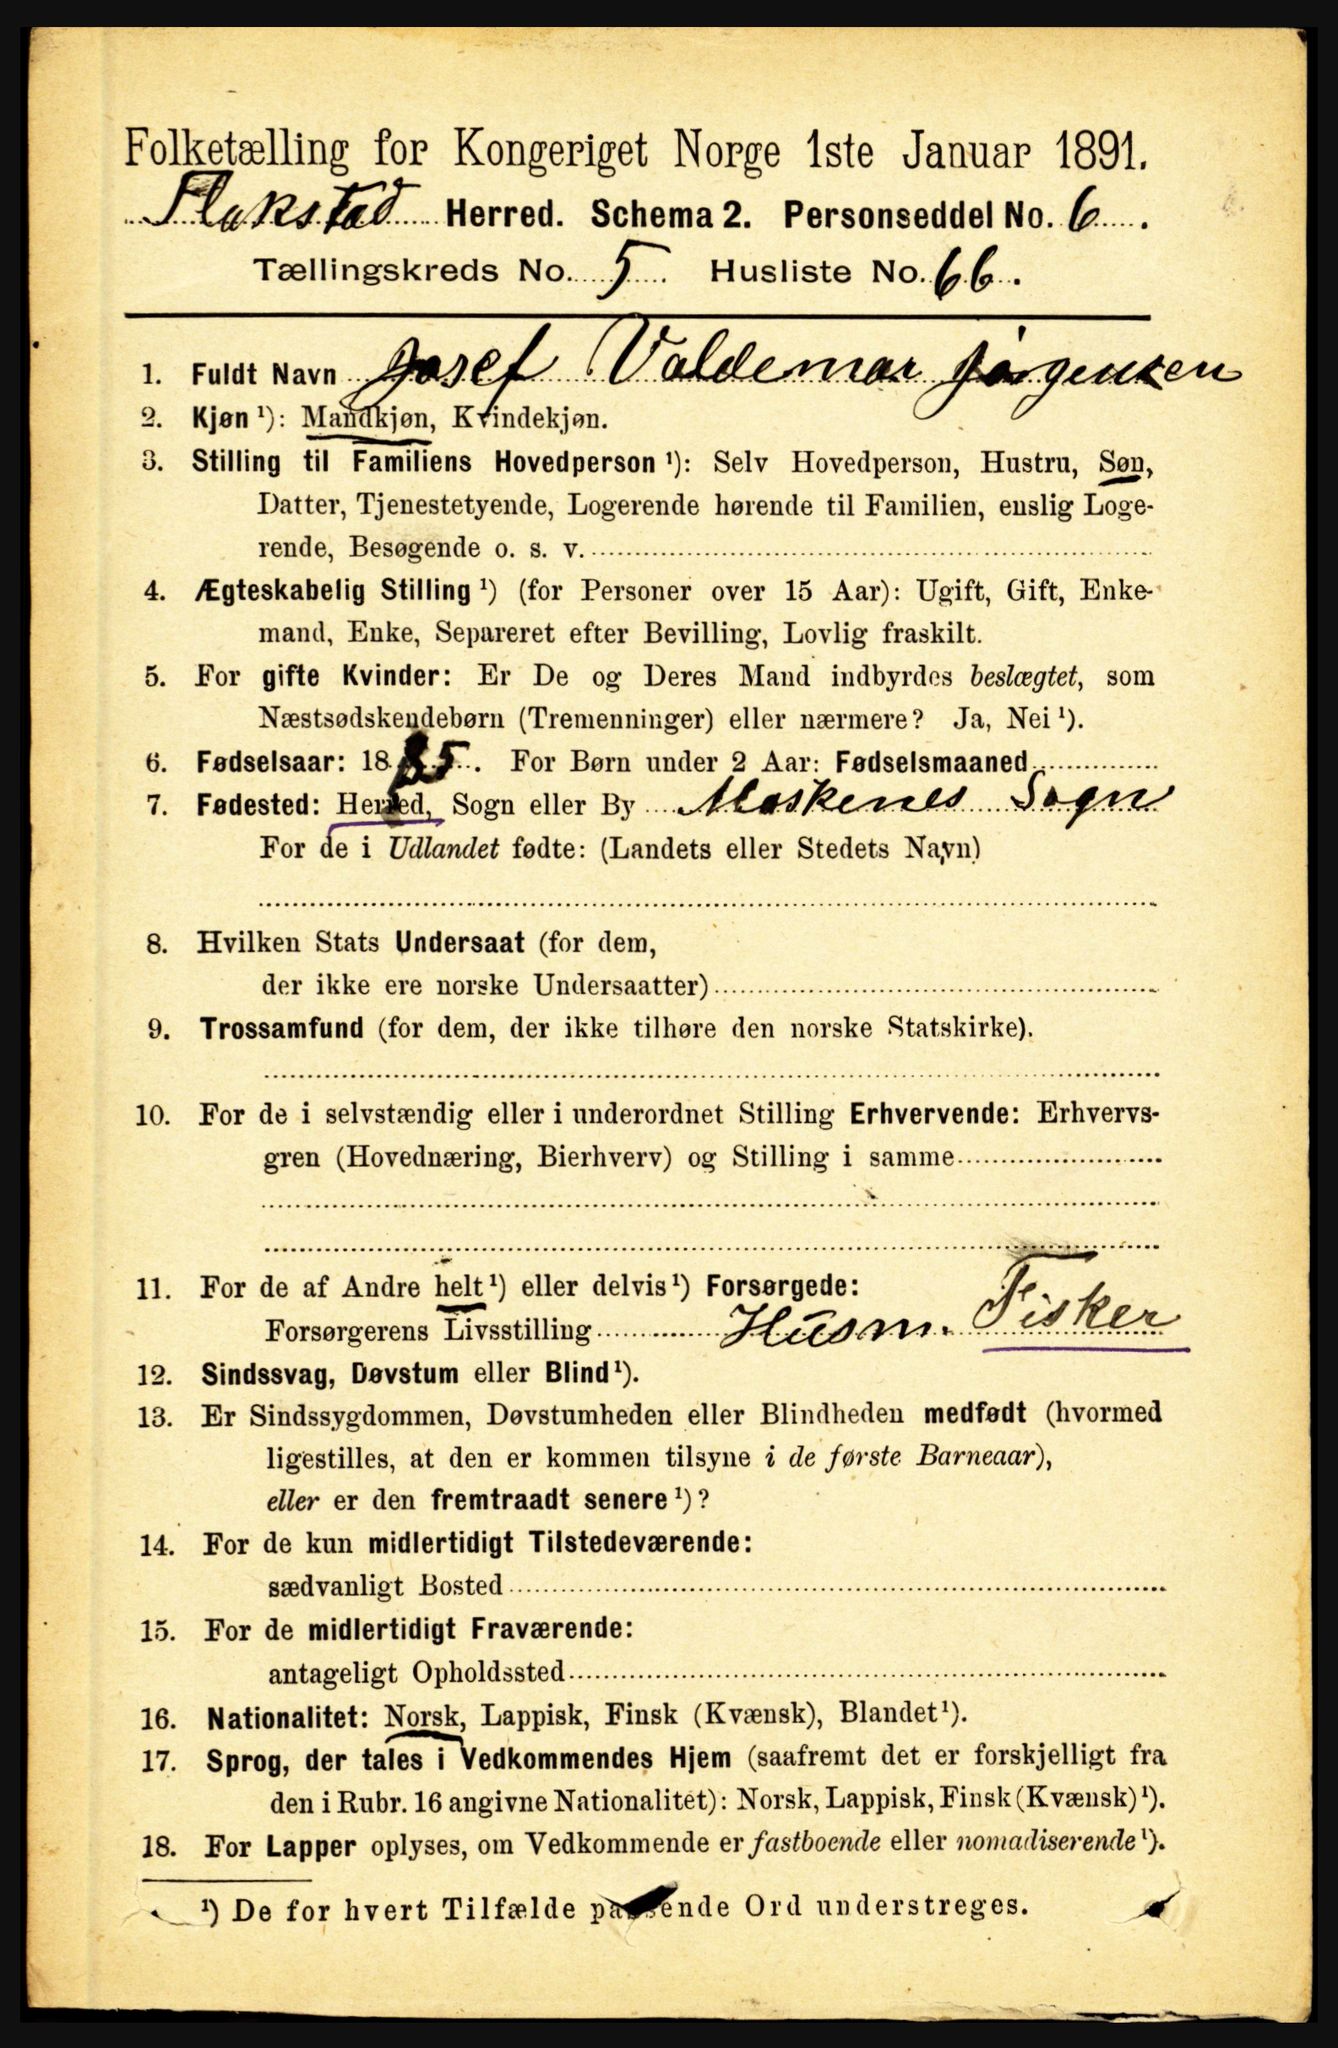 Folketælling for Kongeriget Norge 1ste Januar 1891.
Flakstad Herred. Schema 2. Personseddel No. 6.
Tællingskreds No. 5 Husliste No. 66.
1. Fuldt Navn Josef Valdemar Jørgensen
2. Kjøn ¹): Mandkjøn, Kvindekjøn.
3. Stilling til Familiens Hovedperson ¹): Selv Hovedperson, Hustru, Søn,
Datter, Tjenestetyende, Logerende hørende til Familien, enslig Loge-
rende, Besøgende o. s. v.
4. Ægteskabelig Stilling ¹) (for Personer over 15 Aar): Ugift, Gift, Enke-
mand, Enke, Separeret efter Bevilling, Lovlig fraskilt.
5. For gifte Kvinder: Er De og Deres Mand indbyrdes beslægtet, som
Næstsødskendebørn (Tremenninger) eller nærmere? Ja, Nei ¹).
6. Fødselsaar: 1885. For Børn under 2 Aar: Fødselsmaaned
7. Fødested: Herred, Sogn eller By Moskenes Sogn
For de i Udlandet fødte: (Landets eller Stedets Navn)
8. Hvilken Stats Undersaat (for dem,
der ikke ere norske Undersaatter)
9. Trossamfund (for dem, der ikke tilhøre den norske Statskirke).
10. For de i selvstændig eller i underordnet Stilling Erhvervende: Erhvervs-
gren (Hovednæring, Bierhverv) og Stilling i samme
11. For de af Andre helt ¹) eller delvis ¹) Forsørgede:
Forsørgerens Livsstilling Husm. Fisker
12. Sindssvag, Døvstum eller Blind ¹).
13. Er Sindssygdommen, Døvstumheden eller Blindheden medfødt (hvormed
ligestilles, at den er kommen tilsyne i de første Barneaar),
eller er den fremtraadt senere ¹)?
14. For de kun midlertidigt Tilstedeværende:
sædvanligt Bosted
15. For de midlertidigt Fraværende:
antageligt Opholdssted
16. Nationalitet: Norsk, Lappisk, Finsk (Kvænsk), Blandet ¹).
17. Sprog, der tales i Vedkommendes Hjem (saafremt det er forskjelligt fra
den i Rubr. 16 angivne Nationalitet): Norsk, Lappisk, Finsk (Kvænsk) ¹).
18. For Lapper oplyses, om Vedkommende er fastboende eller nomadiserende ¹).
¹) De for hvert Tilfælde passende Ord understreges.